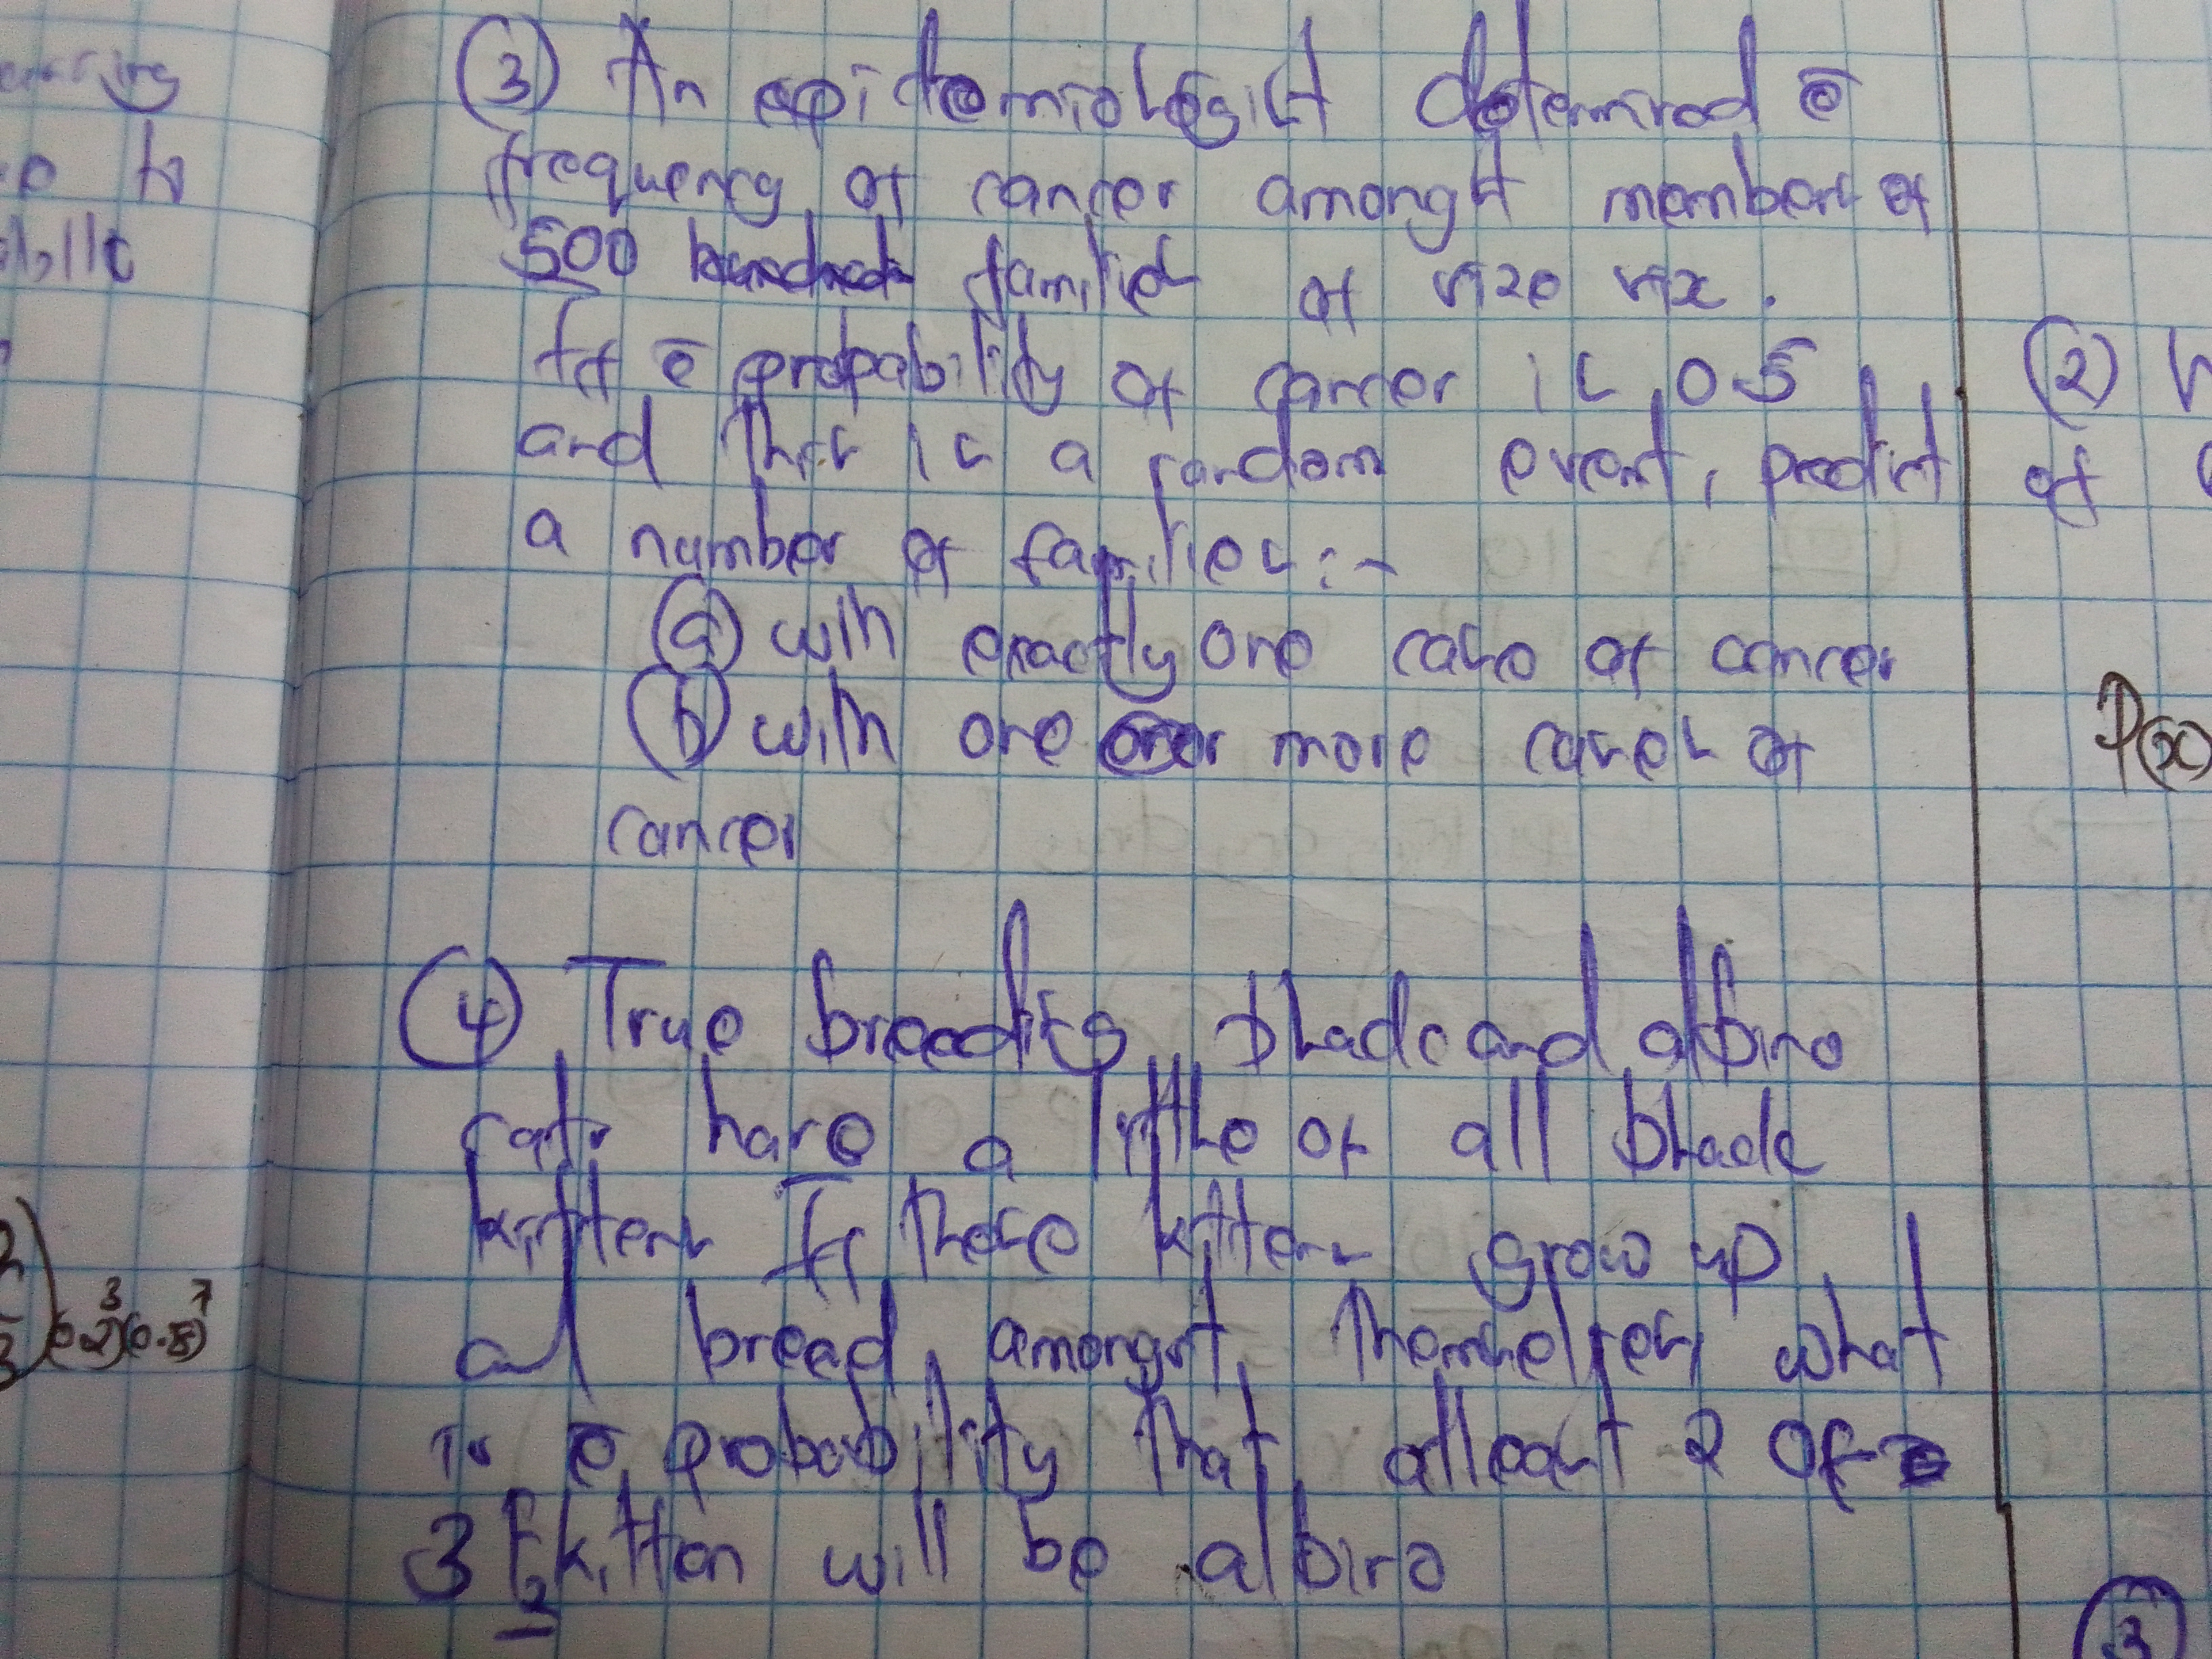 ③ An epidemiologist determined ē
frequency of cancer amongst members of
500 hundred families of size six.
If ē probability of cancer is 0.5
and this is a random event, predict
a number of families:-
ⓐ with exactly one case of cancer
ⓑ with one or more cases of
cancer
④ True breeding black and albino
cats have a little of all black
kittens If these kittens grow up
and breed amongst themselves, what
is ē probability that atleast 2 of
3 F2 kitten will be albino
3 7
(0.2)(0.8)
(2)
of
P(x)
3